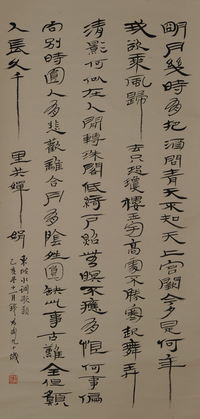 明月幾時有把酒問青天不知天上宮闕今夕是何年
我欲乘風歸去只恐瓊樓玉宇高處不勝寒起舞弄
清影何似在人間轉珠閣低綺戶照無眠不應有恨何事偏
向別時圓人有悲歡離合月有陰晴圓缺此事古難全但願
人長久千里共嬋娟
東坡水調歌頭
乙亥冬十一月